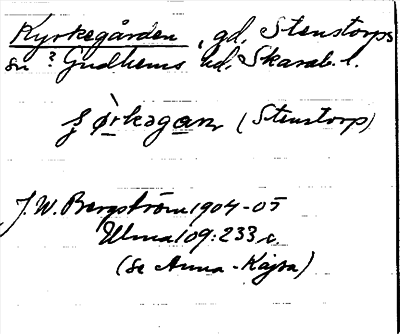 Kyrkegården, gd, Stenstorps
sn ? Gudhems hd. Skarab. l.
(Stenstorp)
J. W. Bergström 1904-05
Ulma 109:233 c.
(Se Anna-Kajsa)